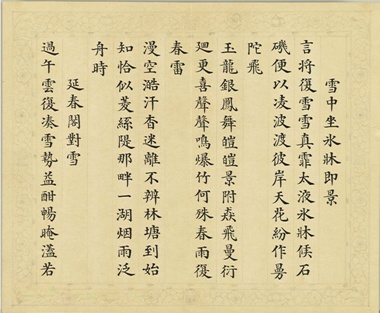 雪中坐氷牀即景
言將復雪雪真霏太液氷牀候石
磯便以凌波渡彼岸天花紛作曼
陀飛
玉龍銀鳳舞皚皚景附猋飛曼衍
廻更喜聲聲鳴爆竹何殊春雨復
春雷
漫空澔汗杳迷離不辨林塘到始
知恰似菱絲隄那畔一湖烟雨泛
舟時
延春閣對雪
過午雲復凑雪勢益酣暢晻濭若